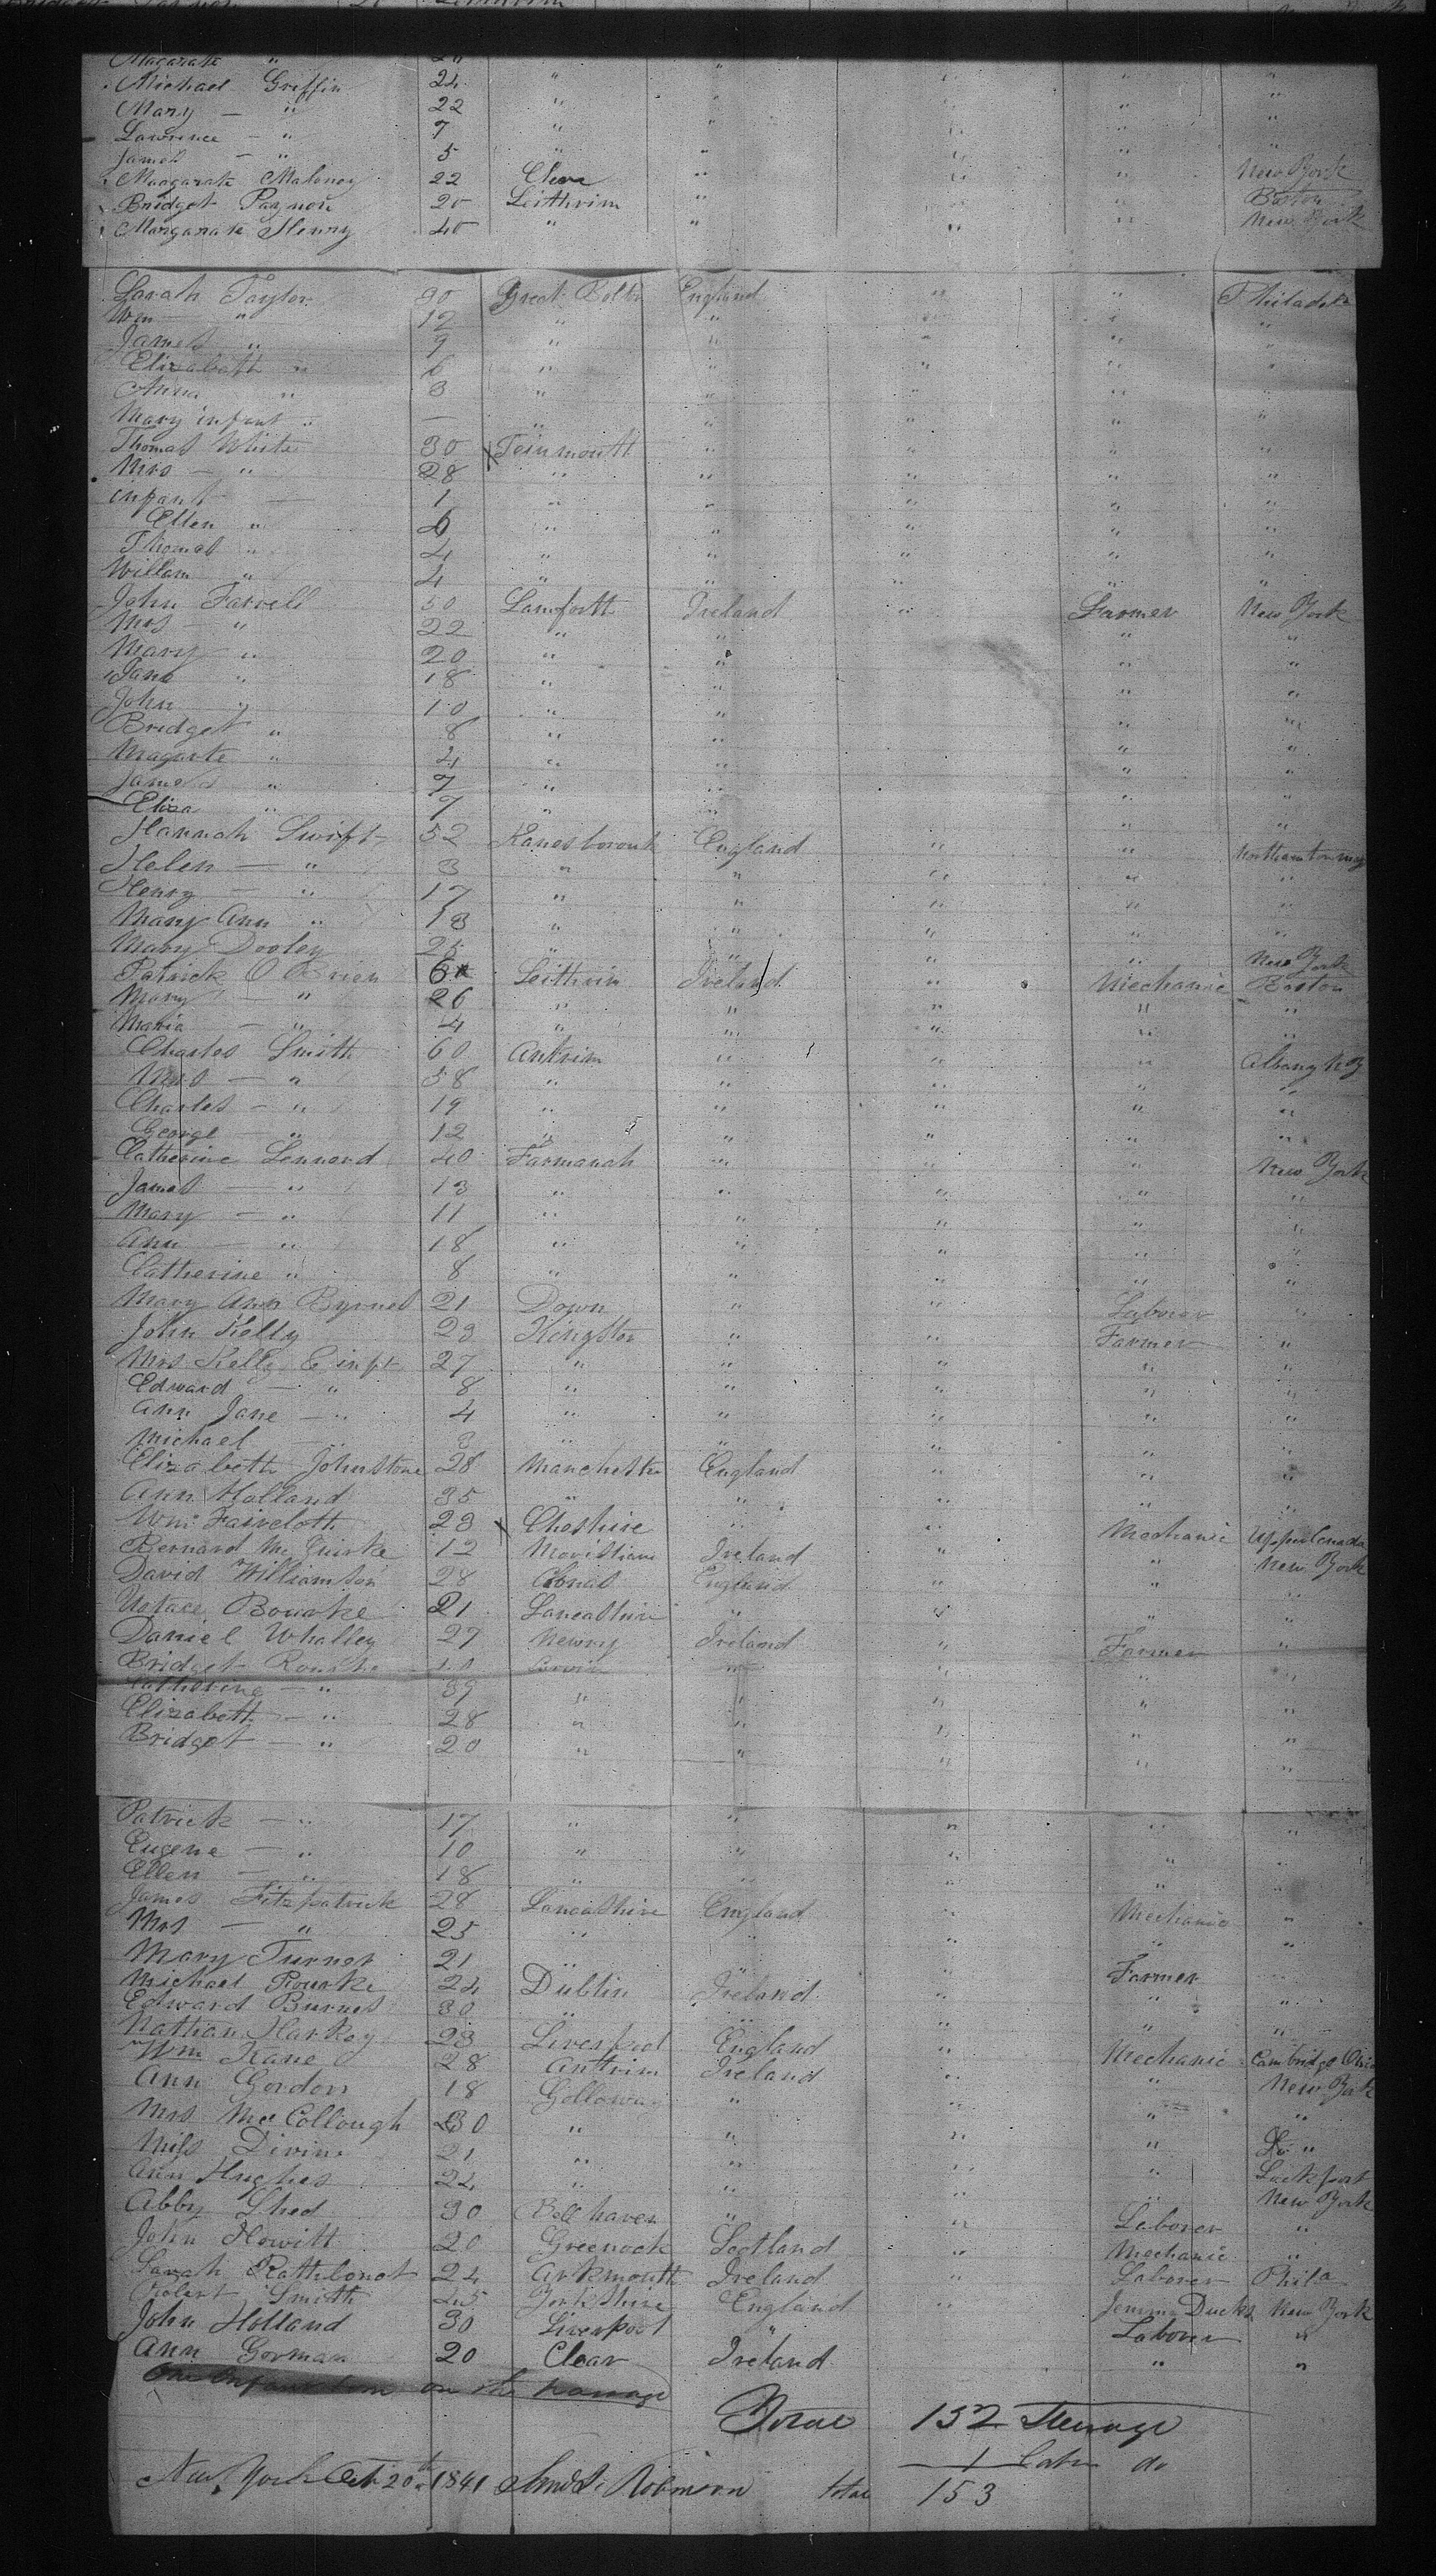 Magarate " 20
Michael Griffin 24 " " " " "
Mary — " 22 " " " " "
Lawrence — " 7 " " " " "
James — " 5 " " " " "
Maagarate Maloney 22 Clare " " " New York
Bridget 20 Leithrim " " " Boston
Margarate Henry 40 " " " " New York
Sarah Taylor 30 Great England " " Philada
Wm " 12 " " " " "
James " 9 " " " " "
Elizabeth " 6 " " " " "
Anna " 3 " " " " "
Mary infant " — " " " " "
Thomas White 30 Teinmouth " " " "
Mrs — " 28 " " " " "
infant — 1 " " " " "
Ellen " 6 " " " " "
Thomas " 4 " " " " "
Willam " 4 " " " " "
John Farrell 50 Lanforth Ireland " Farmer New York
Mrs — " 22 " " " "
Mary — " 20 " " " "
Jane " 18 " " " "
John " 10 " " " "
Bridget " 8 " " " "
Magarte " 4 " " " "
James " 7 " " " "
Eliza " 7 " " " "
Hannah Swift 52 England " "
Helen — " 3 " " " " "
Henry — " 17 " " " " "
Mary Ann " 13 " " " " "
Mary Dooley 25 " " " " New York
Patrick O Brien Leithrim Ireland " Mechanic Boston
Mary — " 26 " " " " "
Maria — " 4 " " " " "
Charles Smith 60 Antrim " " " Albany NY
Mrs — " 58 " " " " "
Charles — " 19 " " " " "
George — " 12 " " " " "
Catherine Lennard 40 Farmanah " " " New York
James — " 13 " " " " "
Mary — " 11 " " " " "
Ann — " 18 " " " " "
Catherine " 8 " " " " "
Mary Ann Byrnes 21 Down " " Laborer "
John Kelly 23 Kingston " " Farmer "
Mrs Kelly & inft 27 " " " " "
Edward — " 8 " " " " "
Ann Jane — " 4 " " " " "
Michael " " " " "
Elizabeth Johnstone 28 Manchester England " " "
Ann Holland 35 " " " " "
Wm Faircloth 23 Cheshire " " Mechanic Upper Canada
Bernard Mc Guirke 12 Ireland " " New York
David Williamson 28 England " " "
Bourke 21 Lancashire " " " "
Daniel Whalley 27 Newry Ireland " Farmer "
Bridget Rourke " " " "
Catherine — " 39 " " " " "
Elizabeth — " 28 " " " " "
Bridget — " 20 " " " " "
Patrick — " 17 " " " " "
Eugene — " 10 " " " " "
Ellen — " 18 " " " " "
James Fitzpatrick 28 Lancashire England " Mechanic "
Mrs — " 25 " " " " "
Mary Turner 21 " " " Farmer "
Michael Rourke 24 Dublin Ireland " " "
Edward Burnes 30 " " " " "
Nathan Harkey 23 Liverpool England " Mechanic Cambridge Ohio
Wm Kane 28 Antrim Ireland " " New York
Ann Gordon 18 Golloway " " " "
Mrs McCollough 30 " " " " Do "
Miss Divine 21 " " " " Lockport
Ann Hughes 24 " " " " New York
Abby Shed 30 Bellhaven " " Laborer "
John Howitt 20 Greenock Scotland " Mechanic "
Sarah 24 Arkmouth Ireland " Laborer Phila
Robert Smith 45 Yorkshire England " New York
John Holland 30 Liverpool " Laborer "
Ann Gorman 20 Clear Ireland " "
One Infant born on the passage
Total 152 Steerage
1 Cabin do
New York Oct 20th 1841 Robinson total 153